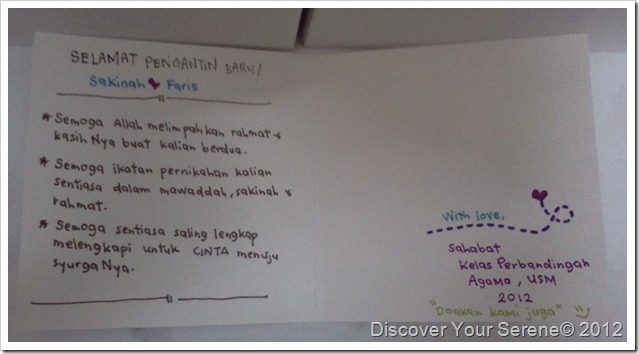 SELAMAT PENGANTIN BARU!
Sakinah ♥ Faris
* Semoga Allah melimpahkan rahmat &
kasih Nya buat kalian berdua.
* Semoga ikatan pernikahan kalian
sentiasa dalam mawaddah, sakinah &
rahmat.
* Semoga sentiasa saling lengkap
melengkapi untuk CINTA menuju
syurga Nya.
With love,
sahabat
Kelas Perbandingan
Agama, USM
2012
"Doakan kami juga"
Discover Your Serene© 2012